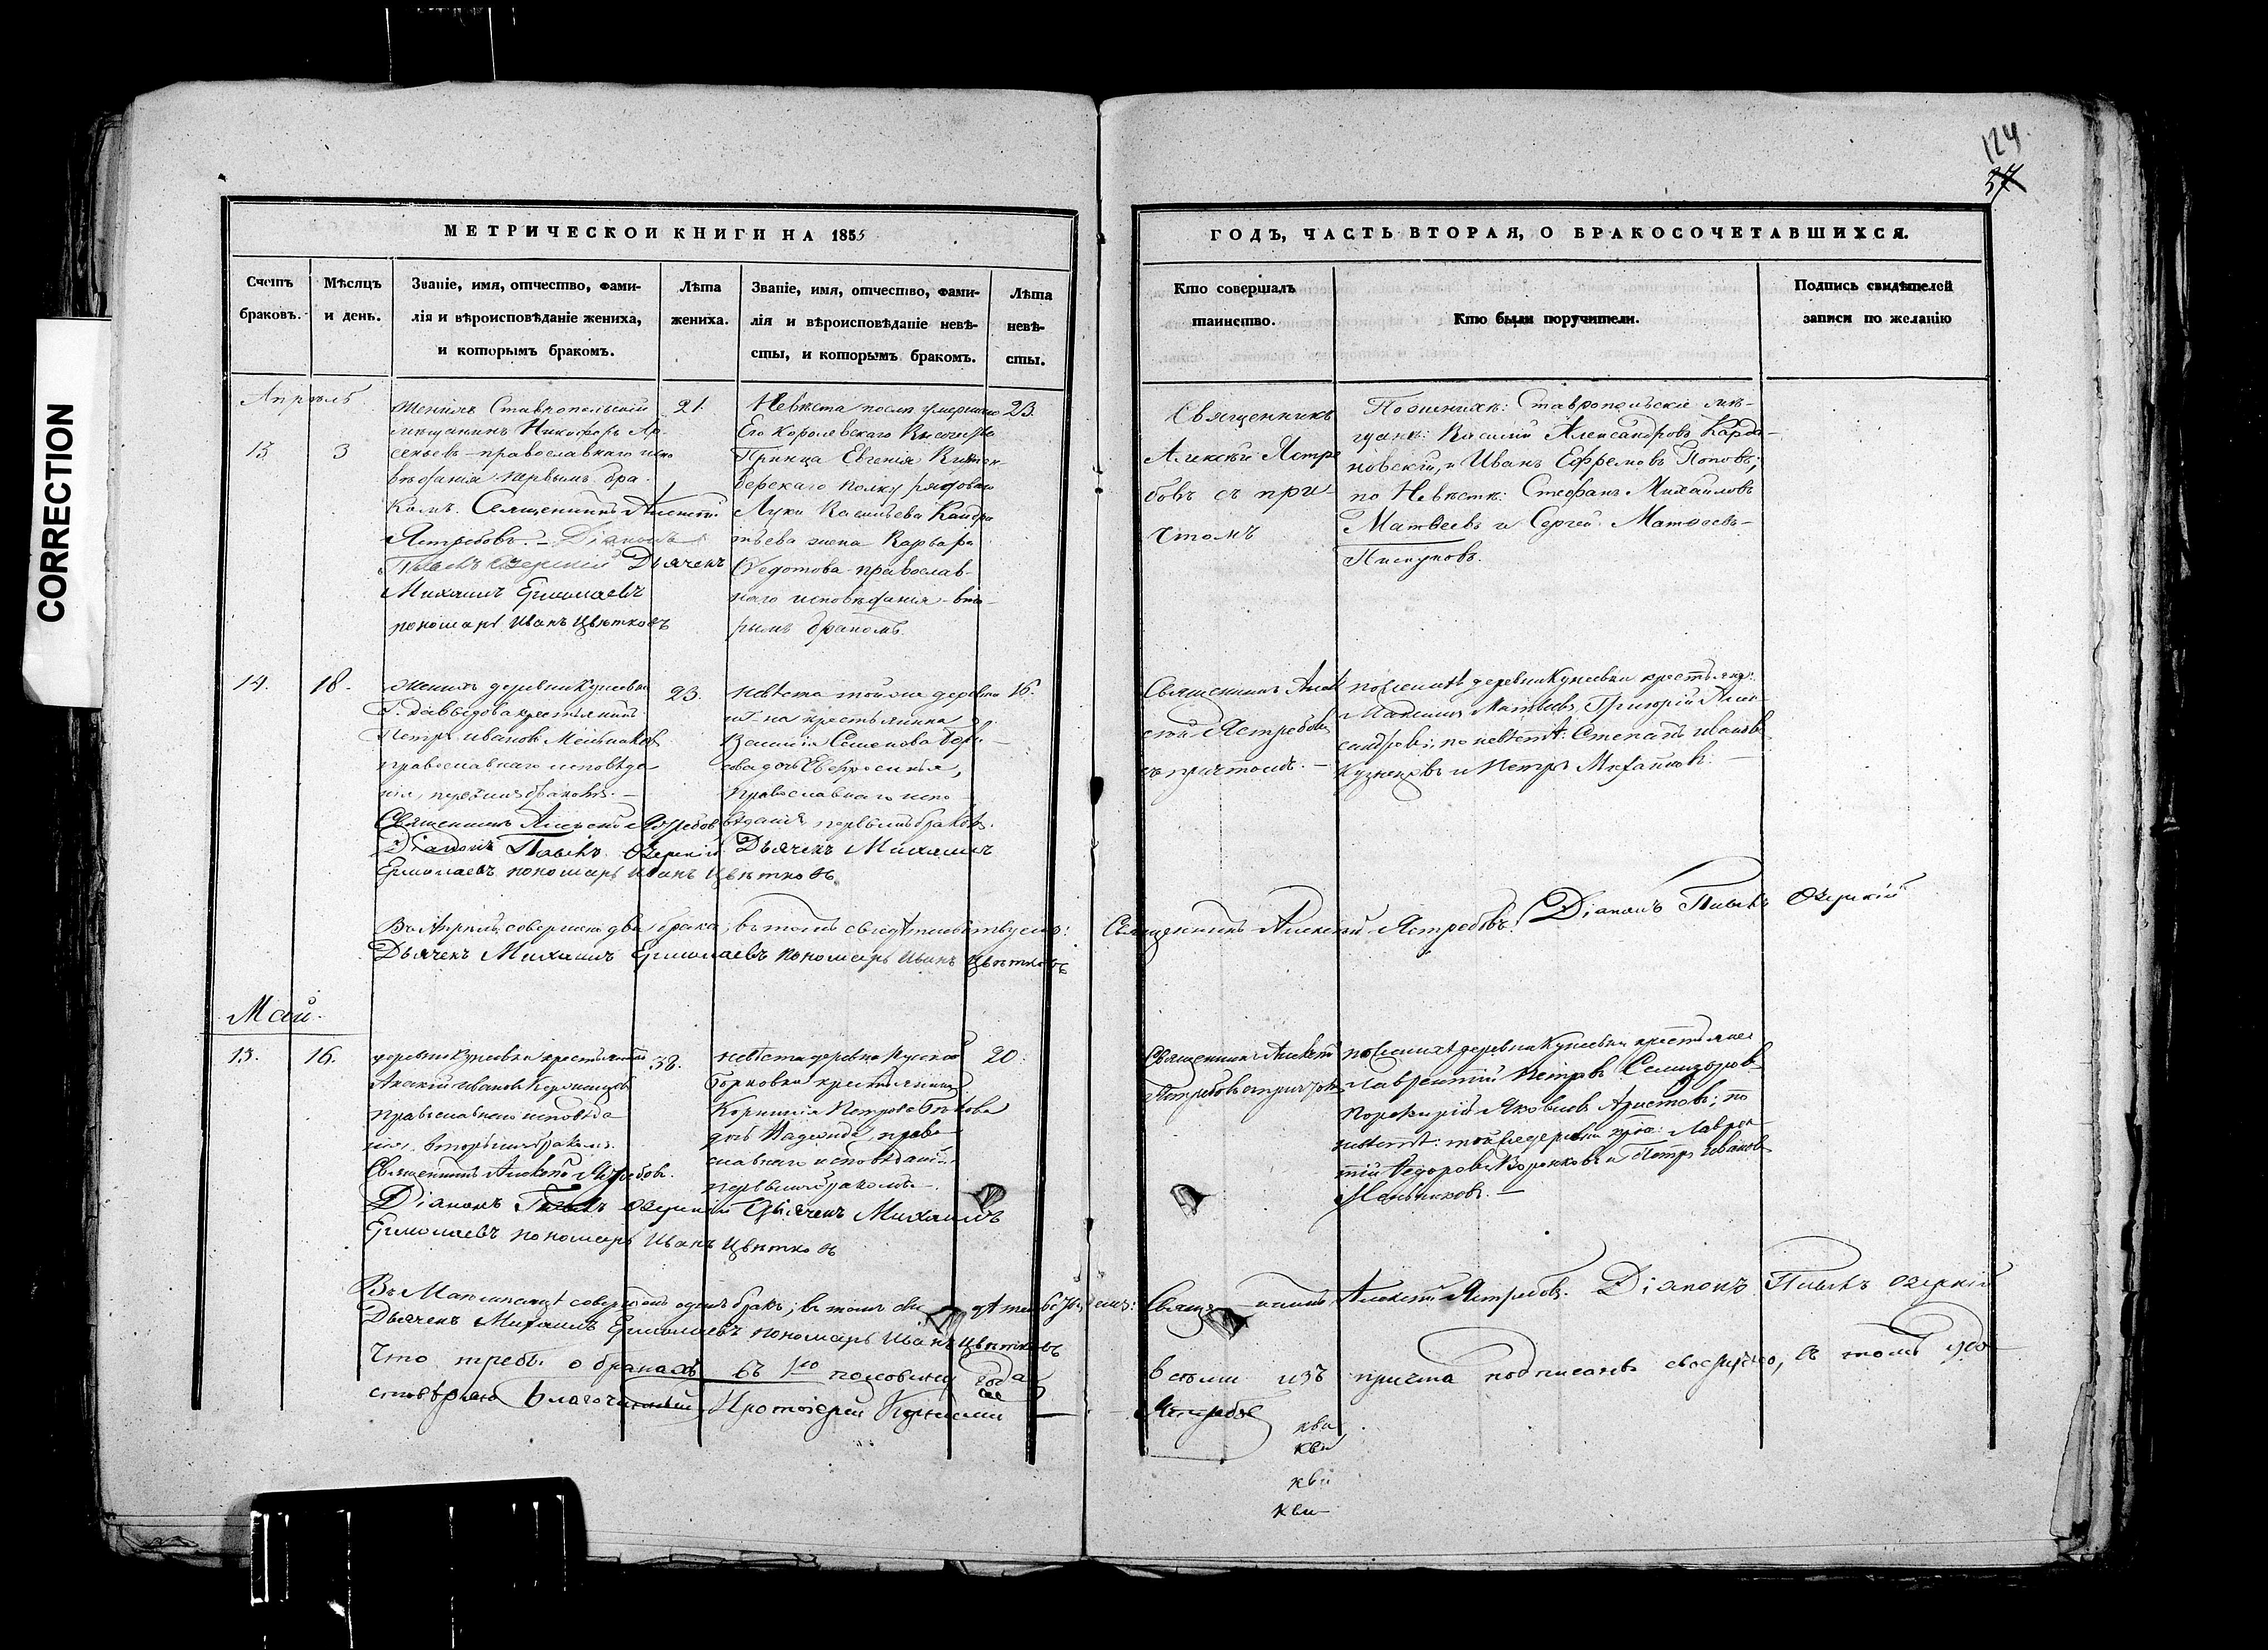 CORRECTION
124
37
МЕТРИЧЕСКОЙ КНИГИ НА 1855
Счетъ
браковъ.
Мѣсяцъ
и день.
Званіе, имя, отчество, фами-
лія и вѣроисповѣданіе жениха,
и которымъ бракомъ.
Лѣта
жениха.
Званіе, имя, отчество, фами-
лія и вѣроисповѣданіе невѣ-
сты, и которымъ бракомъ.
Лѣта
невѣ-
сты.
Апрѣль
13
3
Женихъ Ставропольскій
мѣщанинъ Никифоръ Ар-
сеньевъ православнаго испо
вѣданія первымъ бра-
комъ. Священникъ Алексѣй
Ястребовъ. Діаконъ
Павелъ Озерскій Дьячекъ
Михаилъ Ермолаевъ
пономарь Иванъ Цвѣтковъ
21.
Невѣста послѣ умершаго
Его Королевскаго Высочества
Принца Евгенія Виртем-
бергскаго полку рядоваго
Луки Васильева Кандра
тьева жена Варвара
Ѳедотова православ-
наго исповѣданія вто-
рымъ бракомъ.
23.
14.
18.
Женихъ деревни Кунеевки
Г. Давыдова крестьянинъ
Петръ Ивановъ Мельников
православнаго исповѣда
нія, первымъ бракомъ.
Священникъ Алексѣй Ястребов
Діаконъ Павелъ Озерскій Дьячекъ Михаилъ
Ермолаевъ пономарь Иванъ Цвѣтковъ
23.
Невѣста тойже деревни
и Г-на крестьянина
Василія Семенова Бори-
сова дочь Евфросинія,
православнаго испо-
вѣданія, первымъ бракомъ.
16.
Въ Апрѣлѣ совершено два брака; въ томъ свидѣтельствуемъ:
Дьячекъ Михаилъ Ермолаевъ пономарь Иванъ Цвѣтковъ
Май.
15.
16.
деревни Кунеевки крестьянинъ
Акакій Ивановъ
православнаго исповѣда
нія, вторымъ бракомъ.
Священникъ Алексѣй Ястребовъ.
Діаконъ Павелъ Озерскій Дьячекъ Михаилъ
Ермолаевъ пономарь Иванъ Цвѣтковъ
38.
невѣста деревни Русской
Борковки крестьянина
Корнилія Петрова Бѣлова
дочь Надежда, право
славнаго исповѣданія
первымъ бракомъ.
20.
Въ Маѣ мѣсяцѣ совершенъ одинъ бракъ; въ томъ свидѣтельствуемъ:
Дьячекъ Михаилъ Ермолаевъ пономарь Иванъ Цвѣтковъ
Что требы о бракахъ въ 1ю половину года
стовѣряю Благочинный Протоіерей
ГОДЪ, ЧАСТЬ ВТОРАЯ, О БРАКОСОЧЕТАВШИХСЯ.
Кто совершалъ
таинство.
Кто были поручители.
Подпись свидѣтелей
записи по желанію
Священникъ
Алексѣй Ястре
бовъ съ при-
чтомъ
По женихѣ: Ставропольскіе мѣ-
щане: Василій Александровъ Карда-
новскій, и Иванъ Ефремовъ Поповъ;
по Невѣстѣ: Стефанъ Михайловъ
Матвеевъ и Сергей Матвеевъ
Пискуновъ.
Священникъ Алек
сѣй Ястребовъ
съ причтомъ.
по женихѣ деревни Кунеевки крестьяне:
Матвѣевъ, Григорій Алек-
сандровъ; по невѣстѣ: Степанъ Ивановъ
Кузнецовъ и Петръ Михайловъ.
Священникъ Алексѣй Ястребовъ. Діаконъ Павелъ Озерскій
Священникъ Алексѣй
Ястребовъ съ причтомъ
по женихѣ деревни Кунеевки крестьяне
Лаврентій Петровъ
Порфирій Яковлевъ Аристовъ; по
невѣстѣ: тойже деревни крес: Лаврен-
тій Ѳедоровъ Воронковъ и Петръ Ивановъ
Мельниковъ.
Священникъ Алексѣй Ястребовъ. Діаконъ Павелъ Озерскій
всѣми изъ причта подписаны въ томъ удо
Ястребов